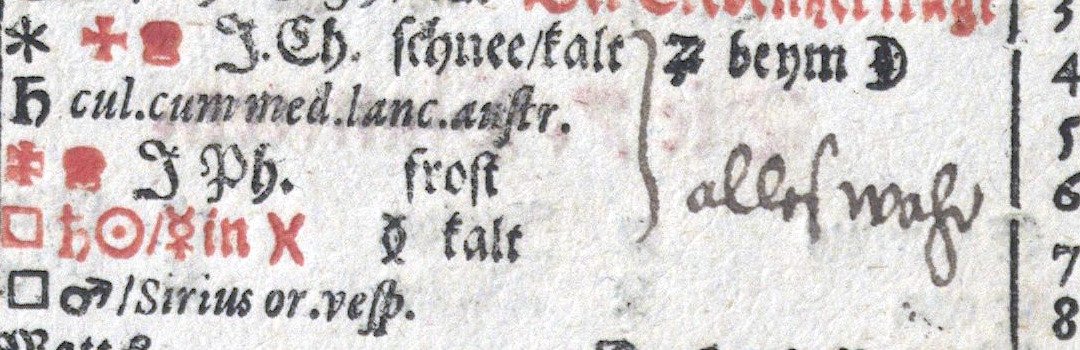 J.Ch. schnee/kalt ♃ beym ☽ 4
♄ cul.cum med.lanc.austr.
5
J Ph. frost
alles wahr 6
□ ♄☉/☿ in ♓ ☿ kalt 7
□ ♂/Sirius or.vesp. 8